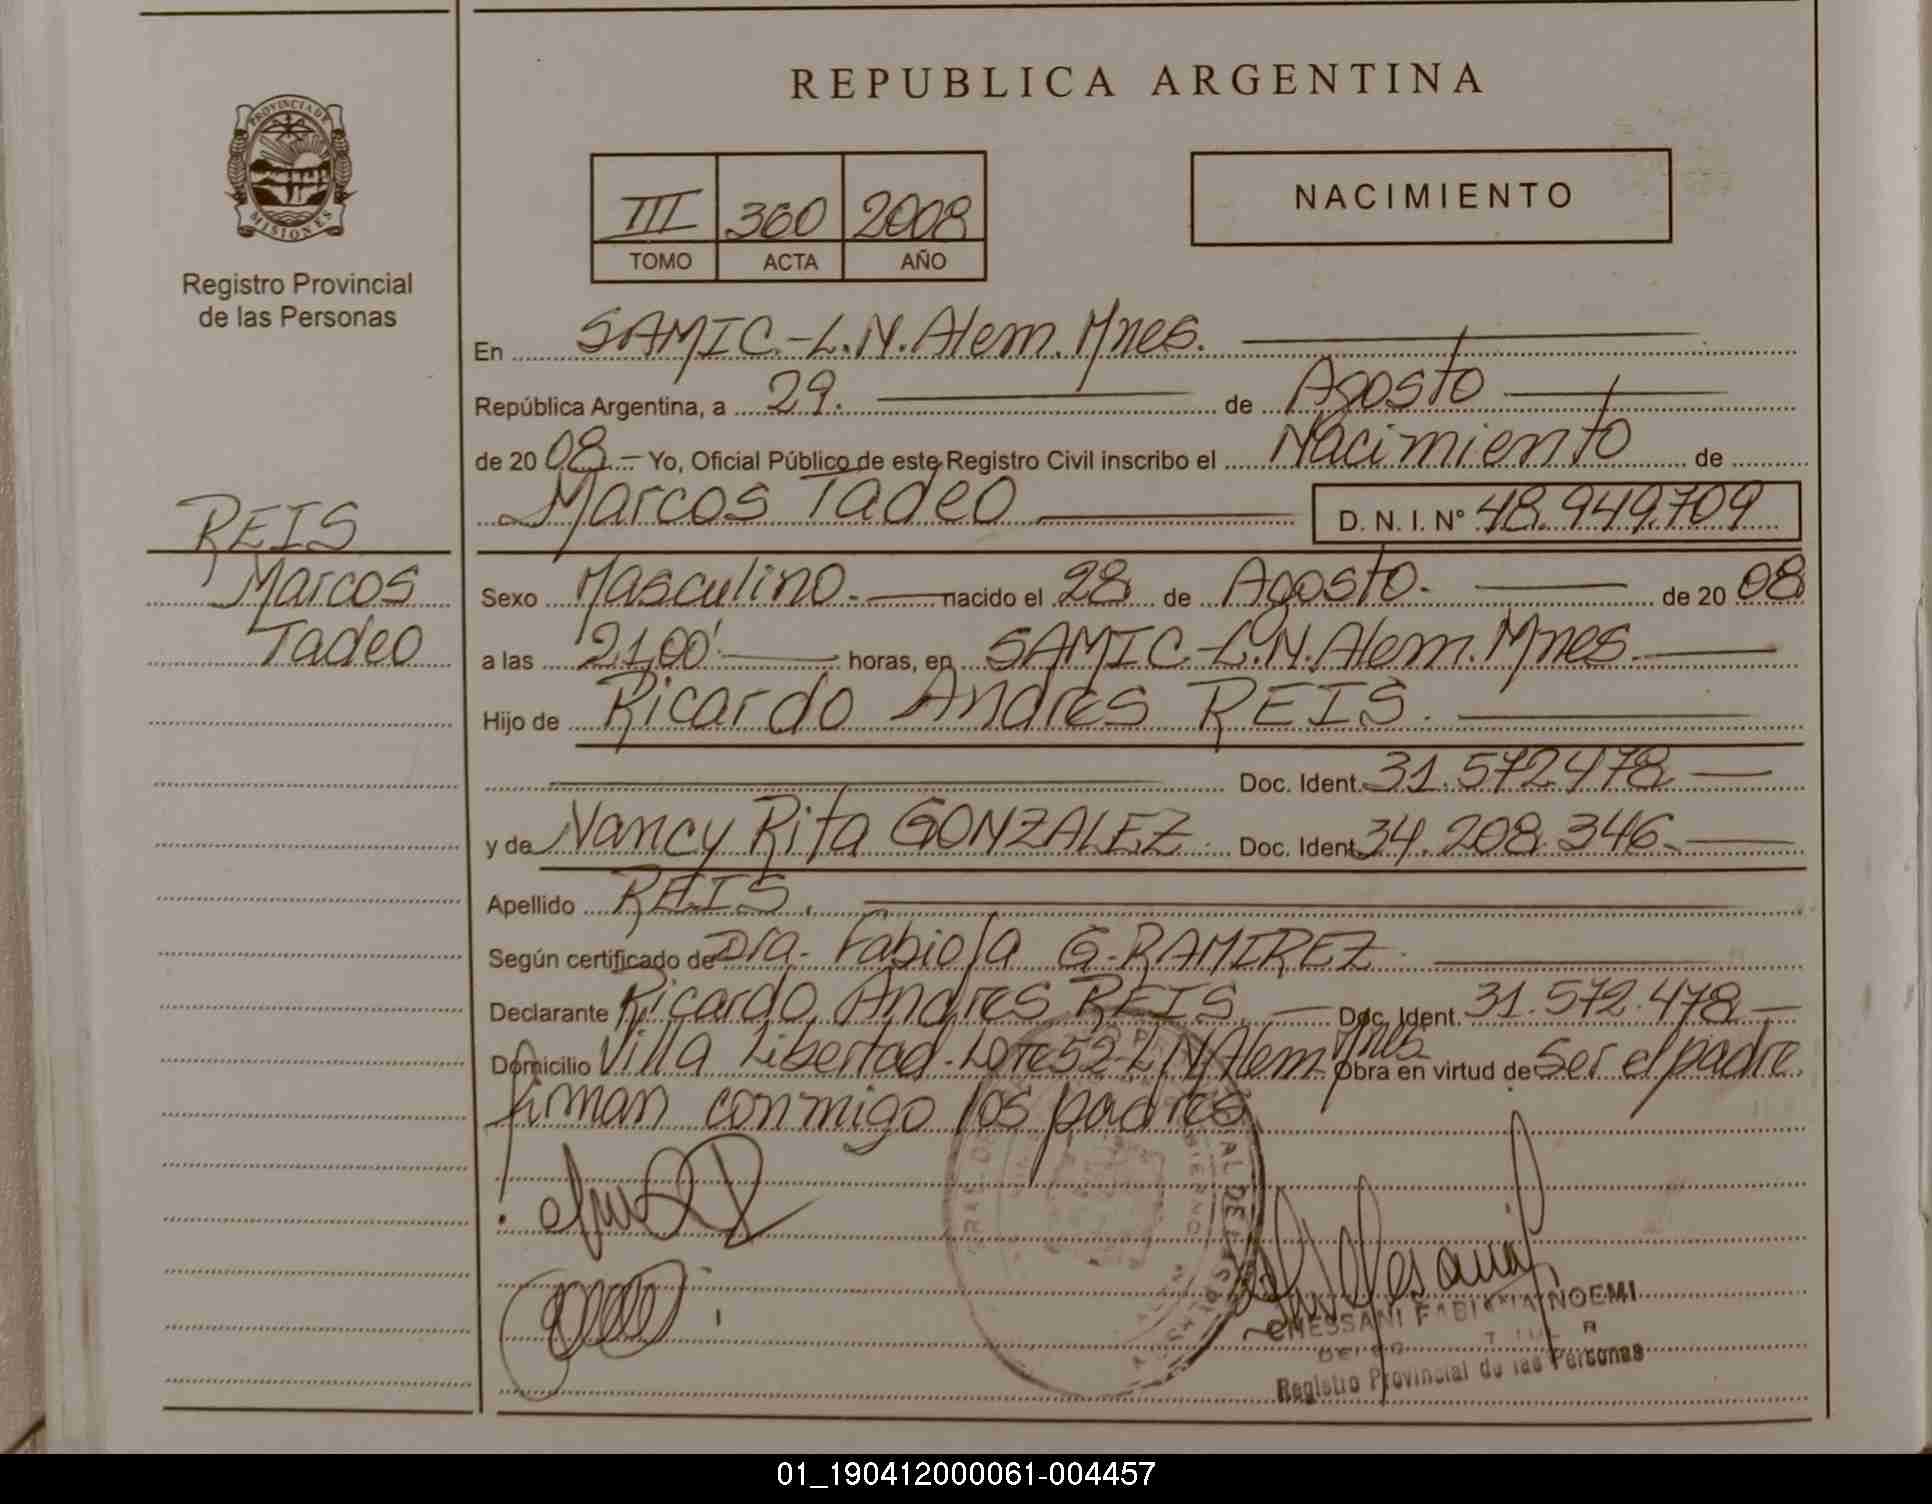 REPUBLICA ARGENTINA
PROVINCIA DE
MISIONES
Registro Provincial
de las Personas
III 360 2008
TOMO ACTA AÑO
NACIMIENTO
En SAMIC.-L.N.Alem.Mnes.
República Argentina, a 29. de Agosto
de 2008.- Yo, Oficial Público de este Registro Civil inscribo el Nacimiento de
Marcos Tadeo D. N. I. Nº 48.949.709
REIS
Marcos
Tadeo
Sexo Masculino.- nacido el 28 de Agosto.- de 2008
a las 21,00' horas, en SAMIC.-L.N.Alem.Mnes.
Hijo de Ricardo Andres REIS.
Doc. Ident. 31.572478
y de Nancy Rita GONZALEZ. Doc. Ident. 34.208.346.
Apellido REIS.
Según certificado de Dra. Fabiola G.RAMIREZ.
Declarante Ricardo Andres REIS. Doc. Ident. 31.572.478
Domicilio Villa Libertad-Lote52-L.N.Alem-Mnes Obra en virtud de Ser el padre.
firman conmigo los padres
CHESSANI FABIANA NOEMI
Registro Provincial de las Personas
01_190412000061-004457